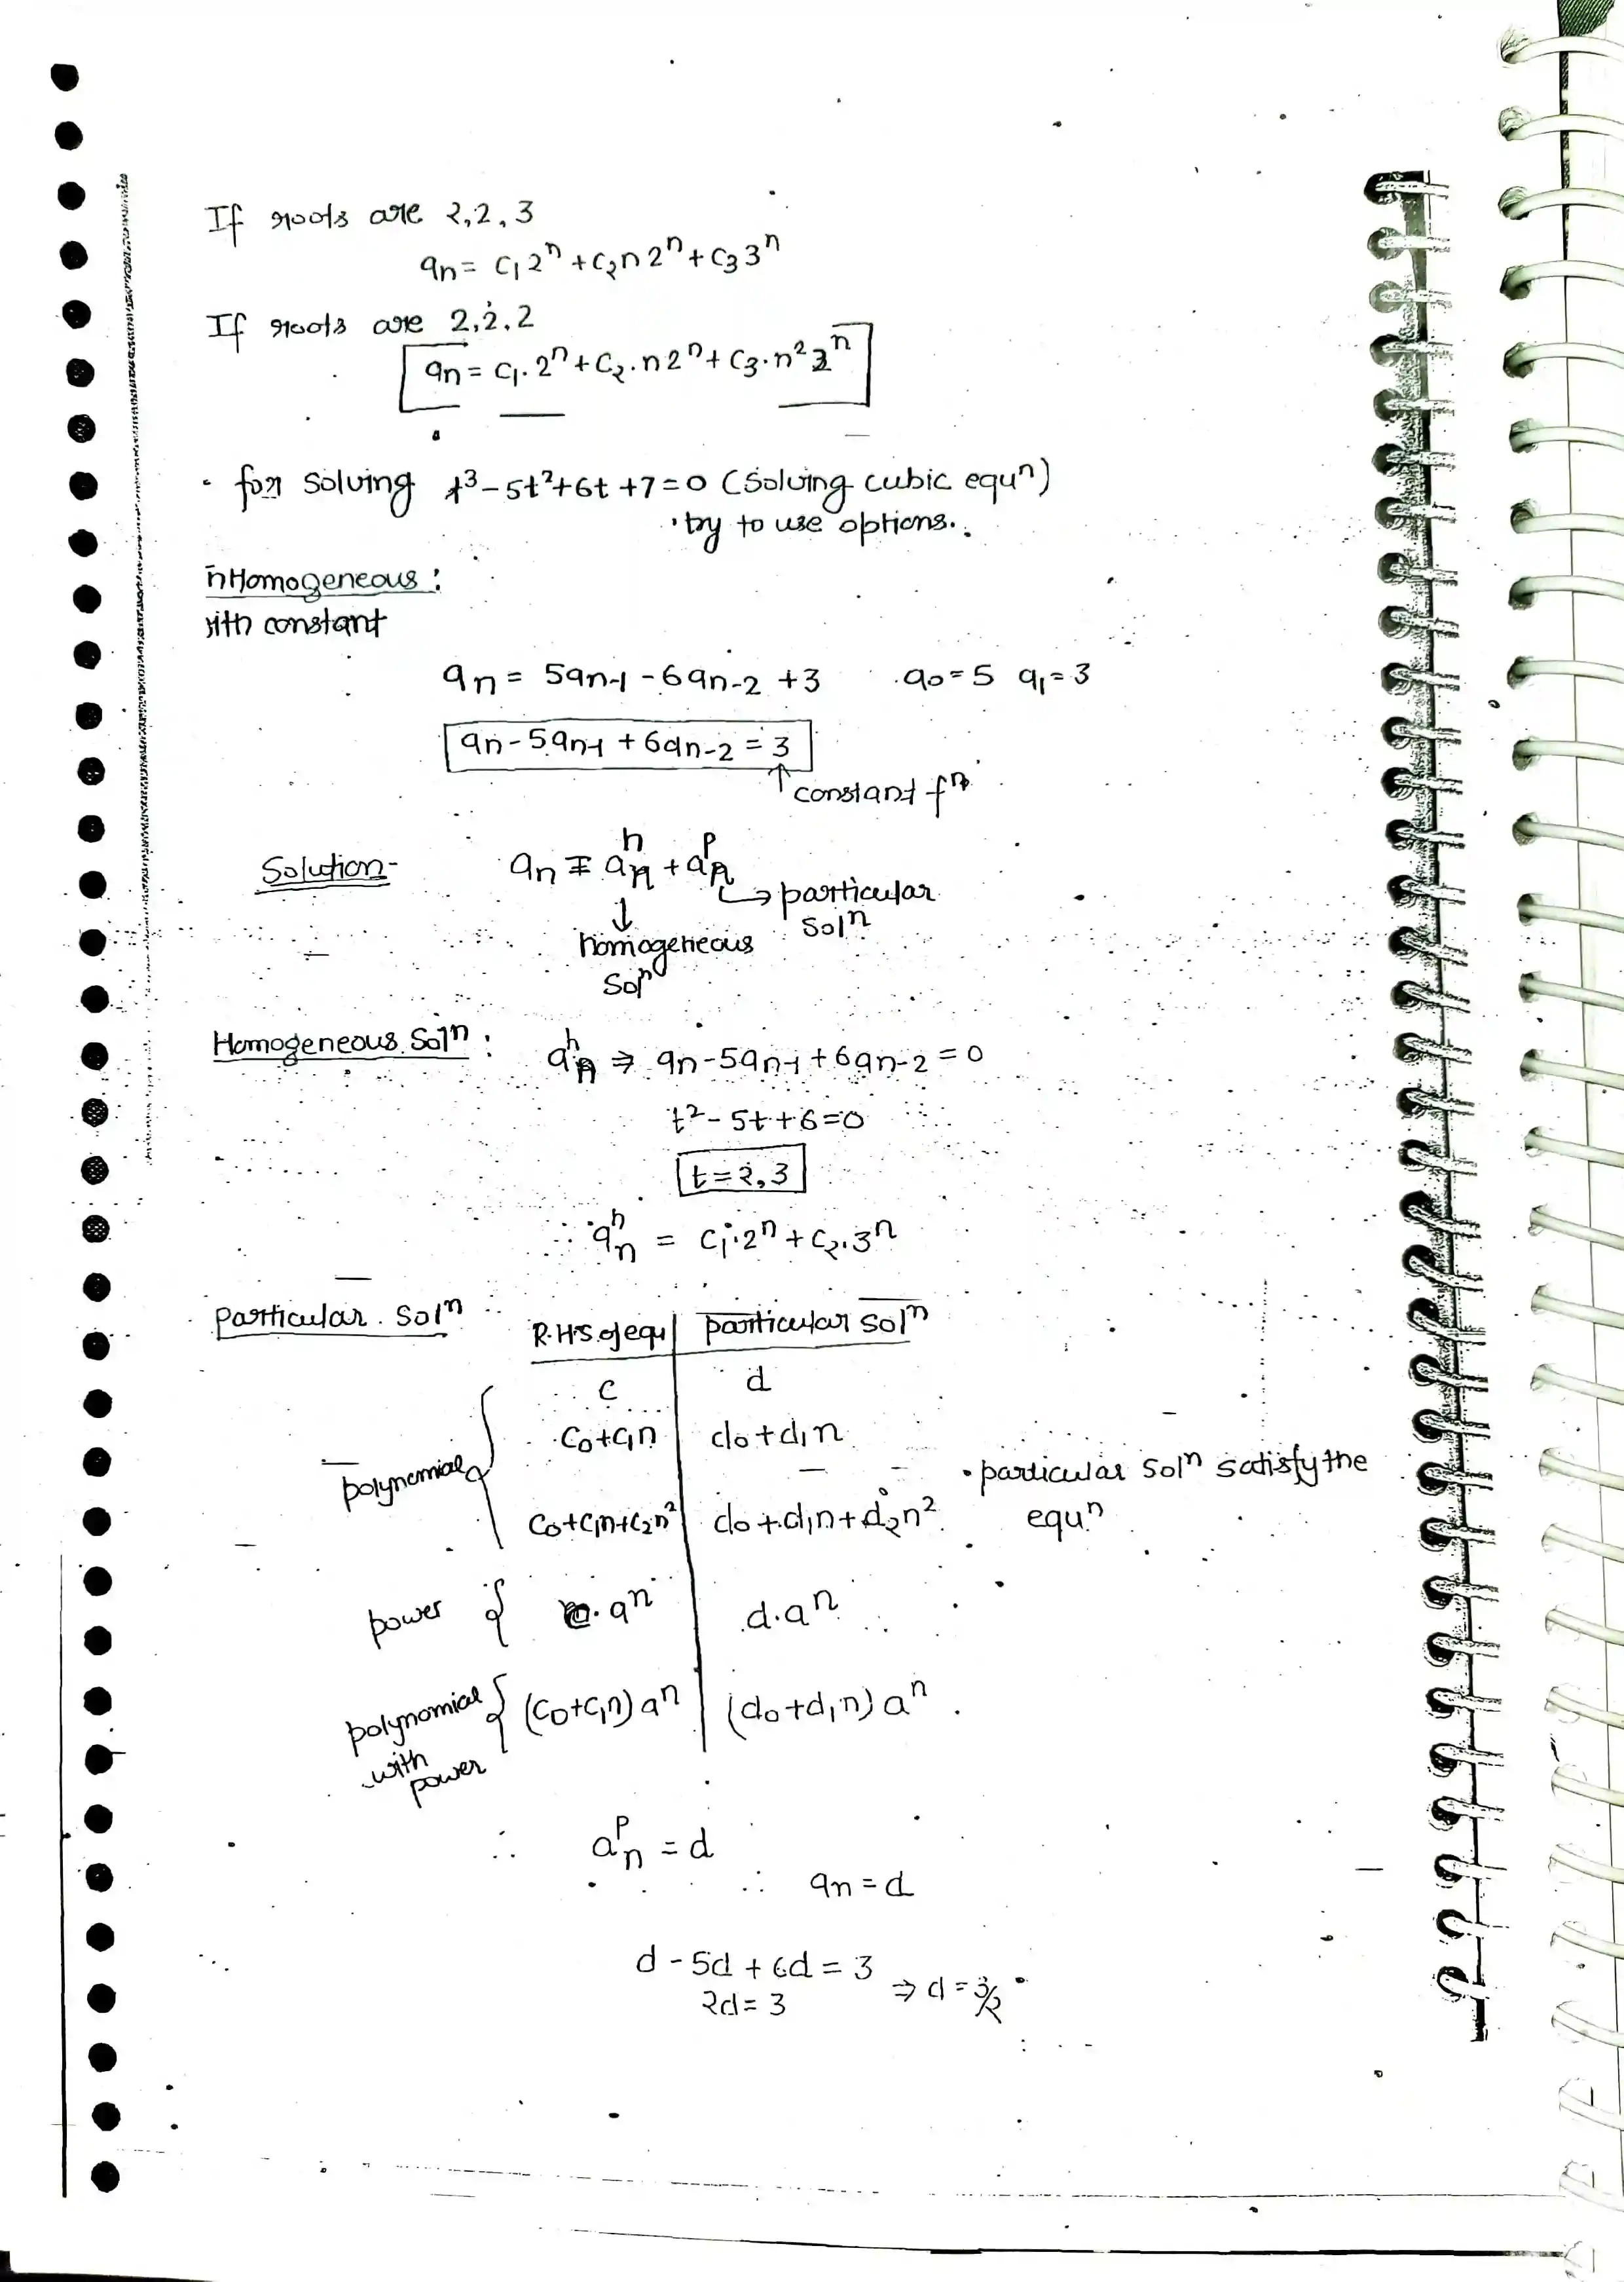 If roots are 2,2,3
an = c₁2ⁿ + c₂n2ⁿ + c₃3ⁿ
If roots are 2,2,2
an = c₁.2ⁿ + c₂.n2ⁿ + c₃.n²2ⁿ
• for solving t³-5t²+6t+7=0 (solving cubic equⁿ)
• try to use options.
nHomogeneous:
ith constant
an = 5an-1 - 6an-2 + 3 a₀=5 a₁=3
an - 5an-1 + 6an-2 = 3
↑ constant fⁿ
Solution- an = aₙʰ + aₙᵖ
→ particular
↓ solⁿ
homogeneous
solⁿ
Homogeneous Solⁿ: aₙʰ ⇒ an - 5an-1 + 6an-2 = 0
t² - 5t + 6 = 0
t = 2, 3
∴ aₙʰ = c₁.2ⁿ + c₂.3ⁿ
Particular. Solⁿ R.H.S. of equ | particular solⁿ
c | d
c₀+c₁n | d₀+d₁n
polynomial { • particular solⁿ satisfy the
c₀+c₁n+c₂n² | d₀+d₁n+d₂n² equⁿ
power { c.aⁿ | d.aⁿ
polynomial { (c₀+c₁n)aⁿ | (d₀+d₁n)aⁿ.
with
power
∴ aₙᵖ = d
∴ an = d
d - 5d + 6d = 3
2d = 3 ⇒ d = 3/2